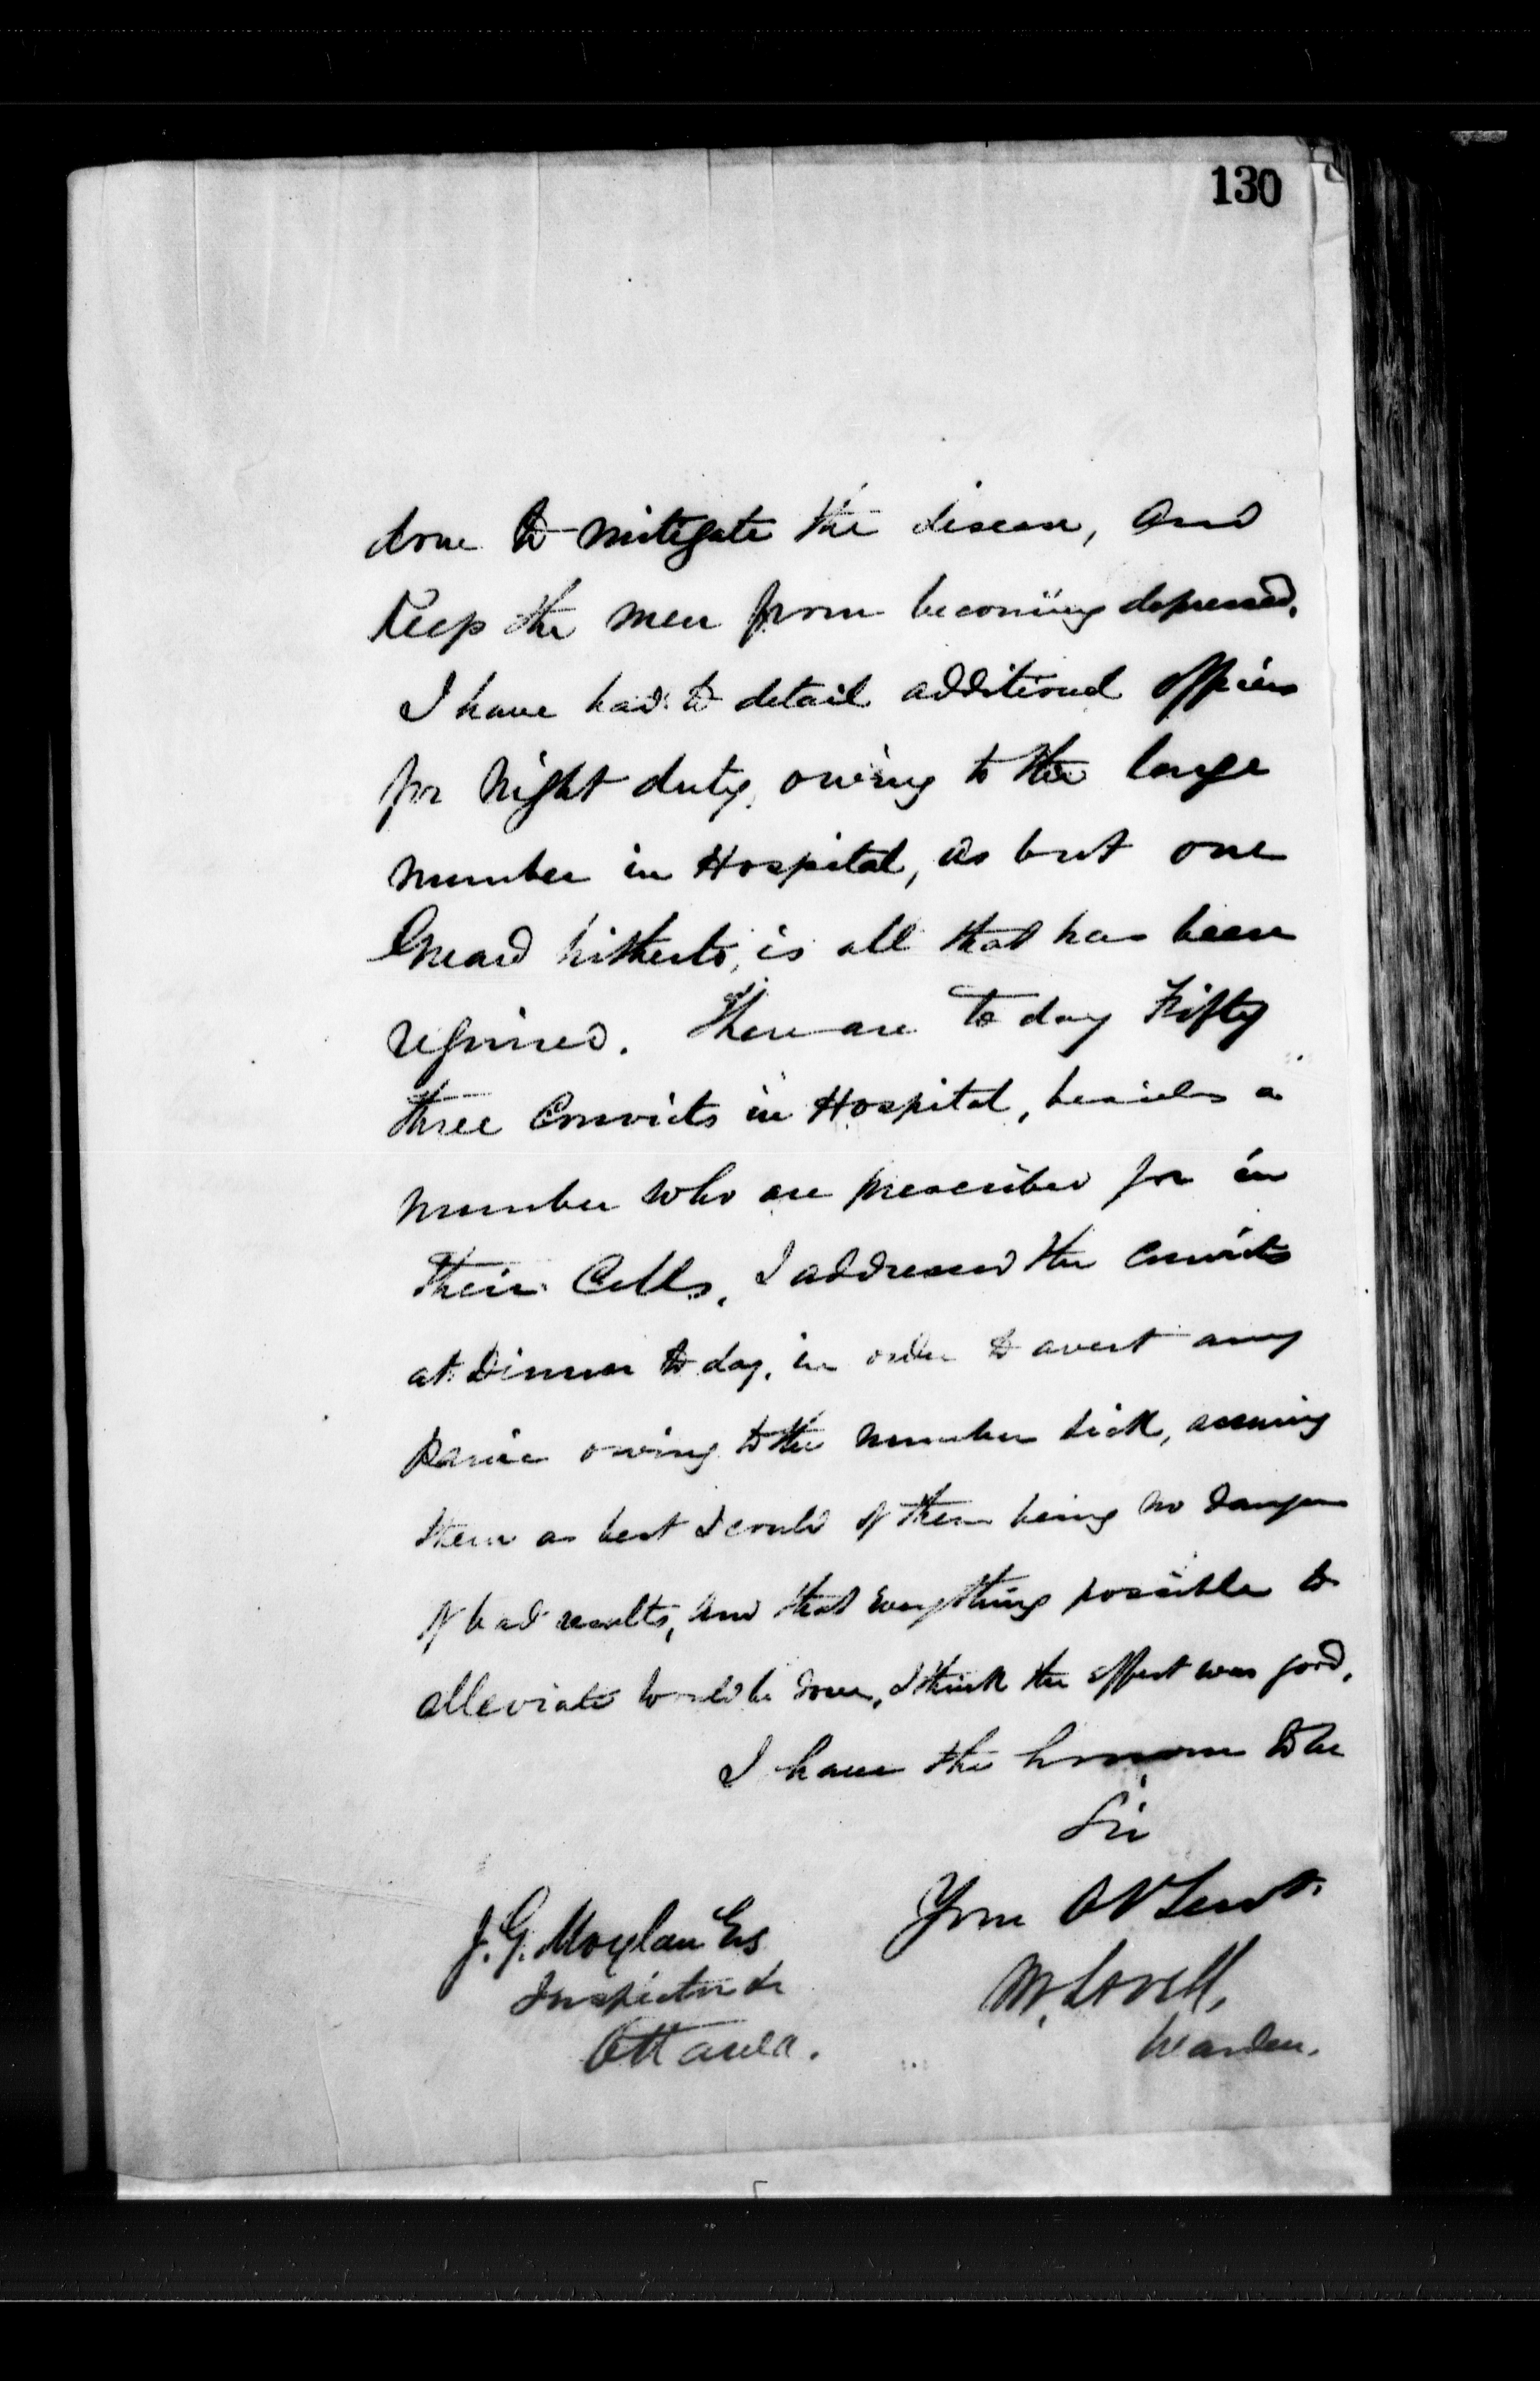 130
done to mitigate the disease, and
Keep the men from becoming depressed.
I have had to detail additional officers
for night duty, owing to the large
number in Hospital, as but one
Guard hitherto, is all that has been
required. There are to day Fifty
three Convicts in Hospital, besides a
number who are prescribed for in
their Cells. I addressed the Convicts
at Dinner to day, in order to avert any
Panic owing to the number sick, assuring
them as best I could of there being no danger
of bad results, and that everything possible to
alleviate would be done, I think the effect was good.
I have the honour to be
Sir
Your Obt Servt.
J. G. Moylan Es
Inspector &c
Ottawa.
M. Lavell,
Warden.